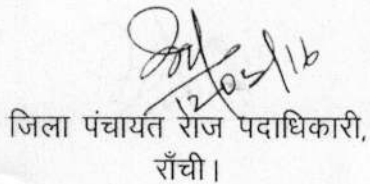 12/05/16
जिला पंचायत राज पदाधिकारी,
राँची।